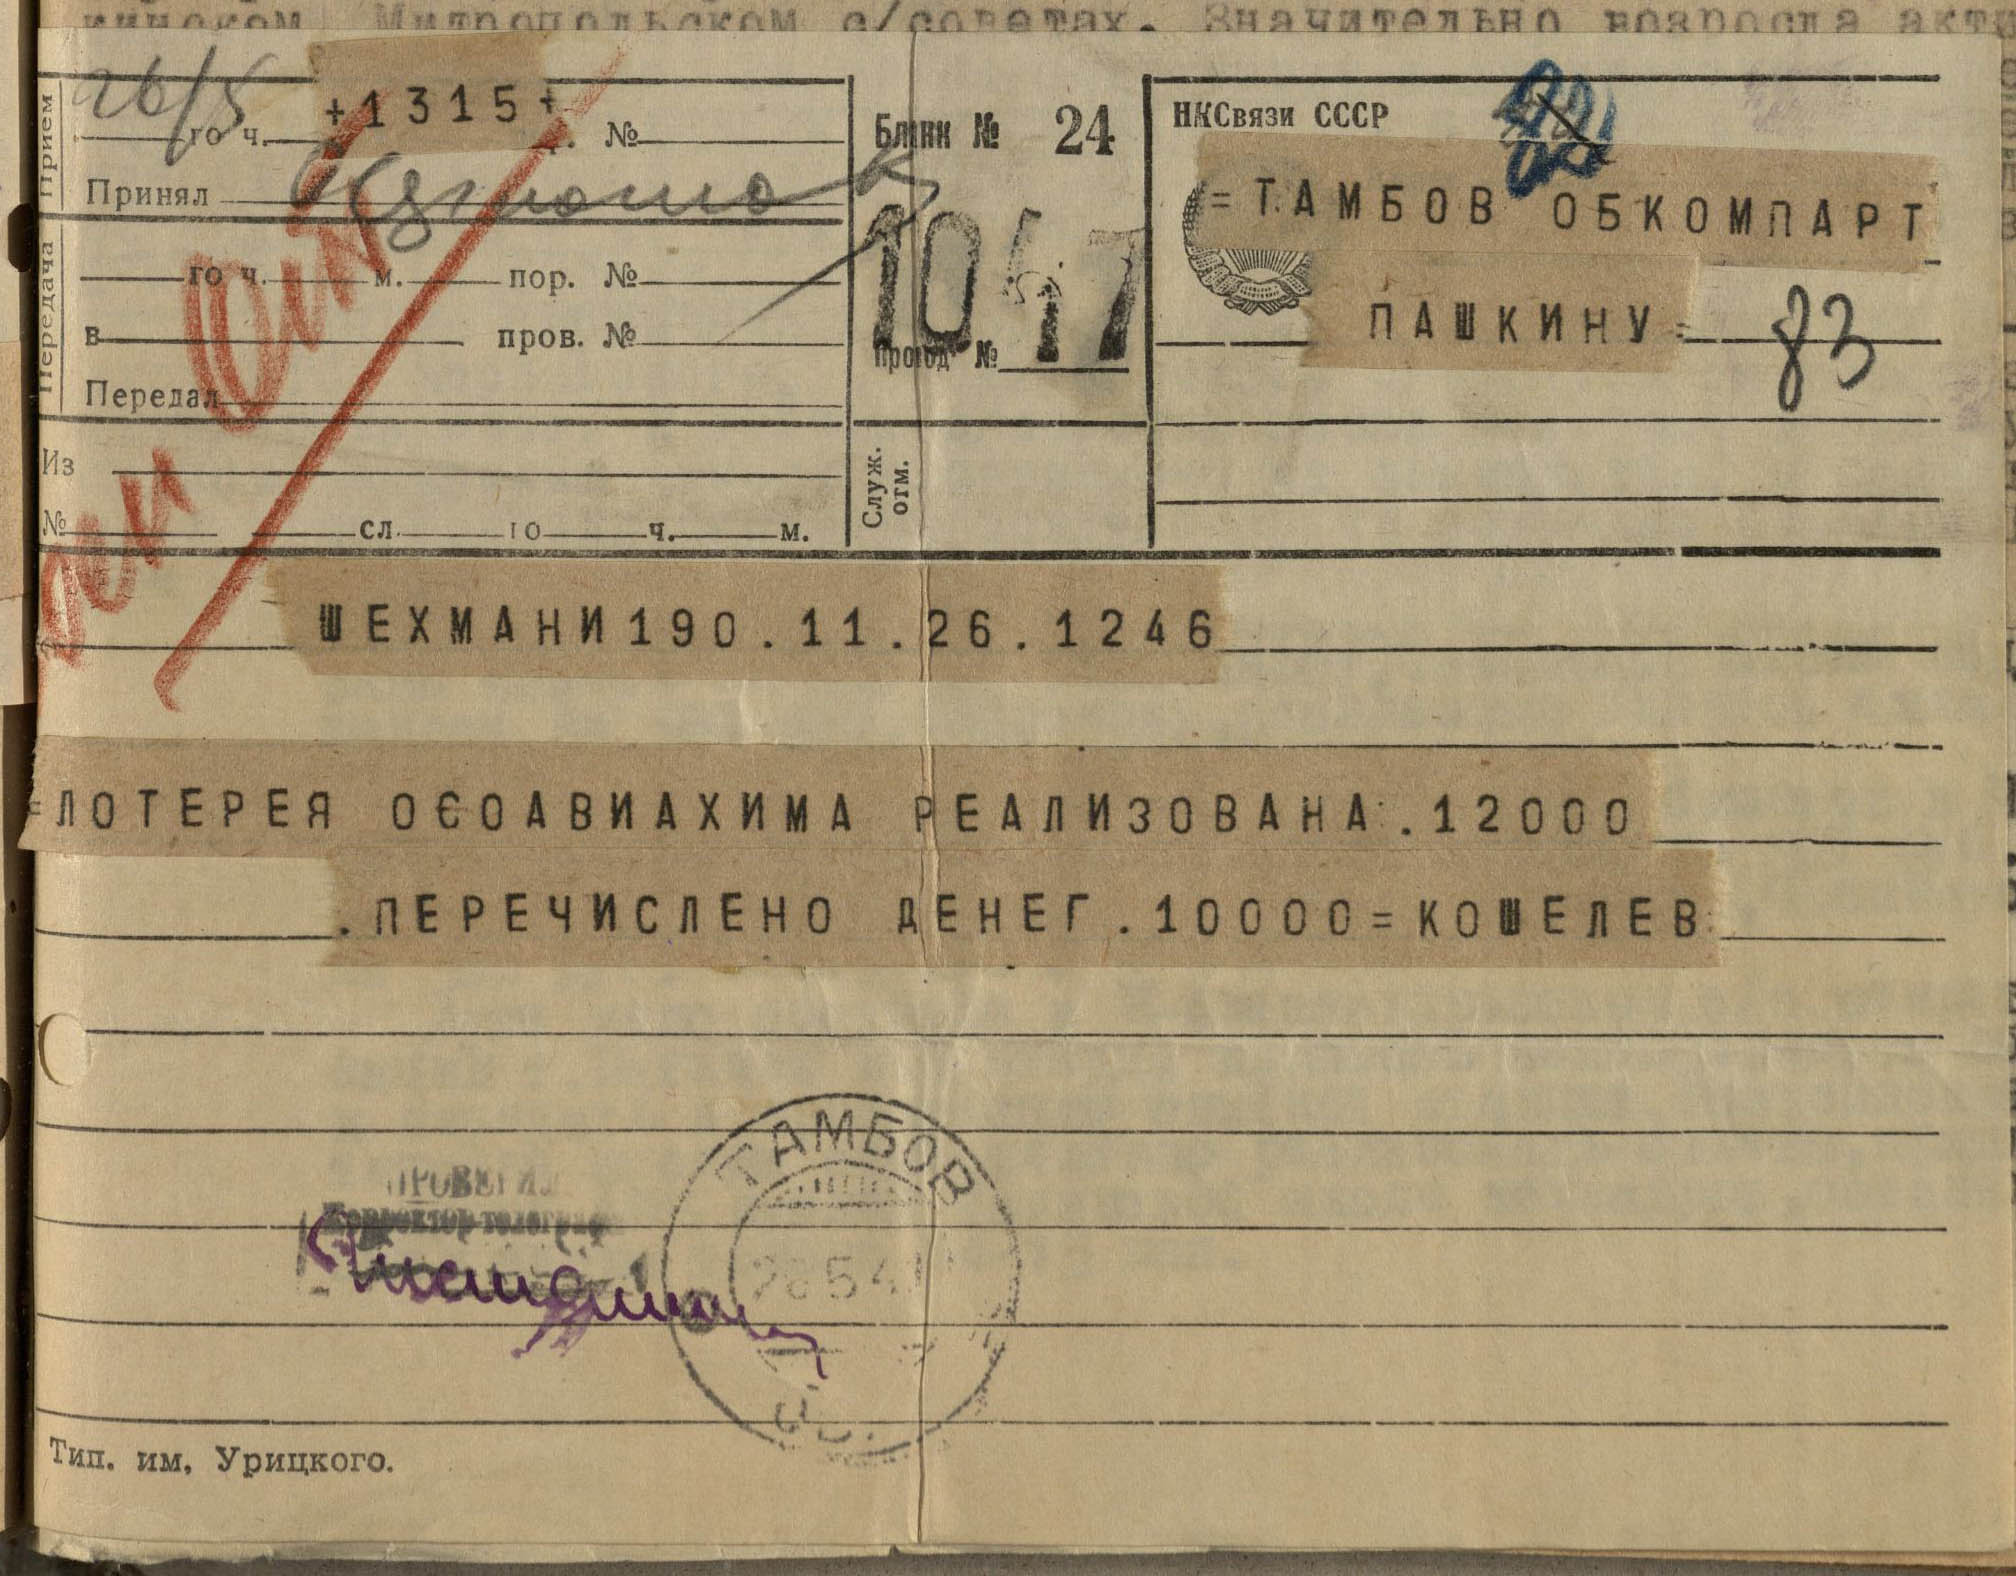 кинском Митропольском с/советах. Значительно возросла акти
26/5
+1315+
Прием
го ч. №
Принял
Передача
го ч. м. пор. №
в пров. №
Передал
Из
№ сл. го ч. м.
Бланк № 24
Провод №
Служ.
отм.
НКСвязи СССР
=ТАМБОВ ОБКОМПАРТ
ПАШКИНУ=
83
ШЕХМАНИ190.11.26.1246
=ЛОТЕРЕЯ ОЄОАВИАХИМА РЕАЛИЗОВАНА.12000
.ПЕРЕЧИСЛЕНО ДЕНЕГ.10000=КОШЕЛЕВ
ПРОВЕРИЛ
Корректор телеграф
ТАМБОВ
Тип. им. Урицкого.